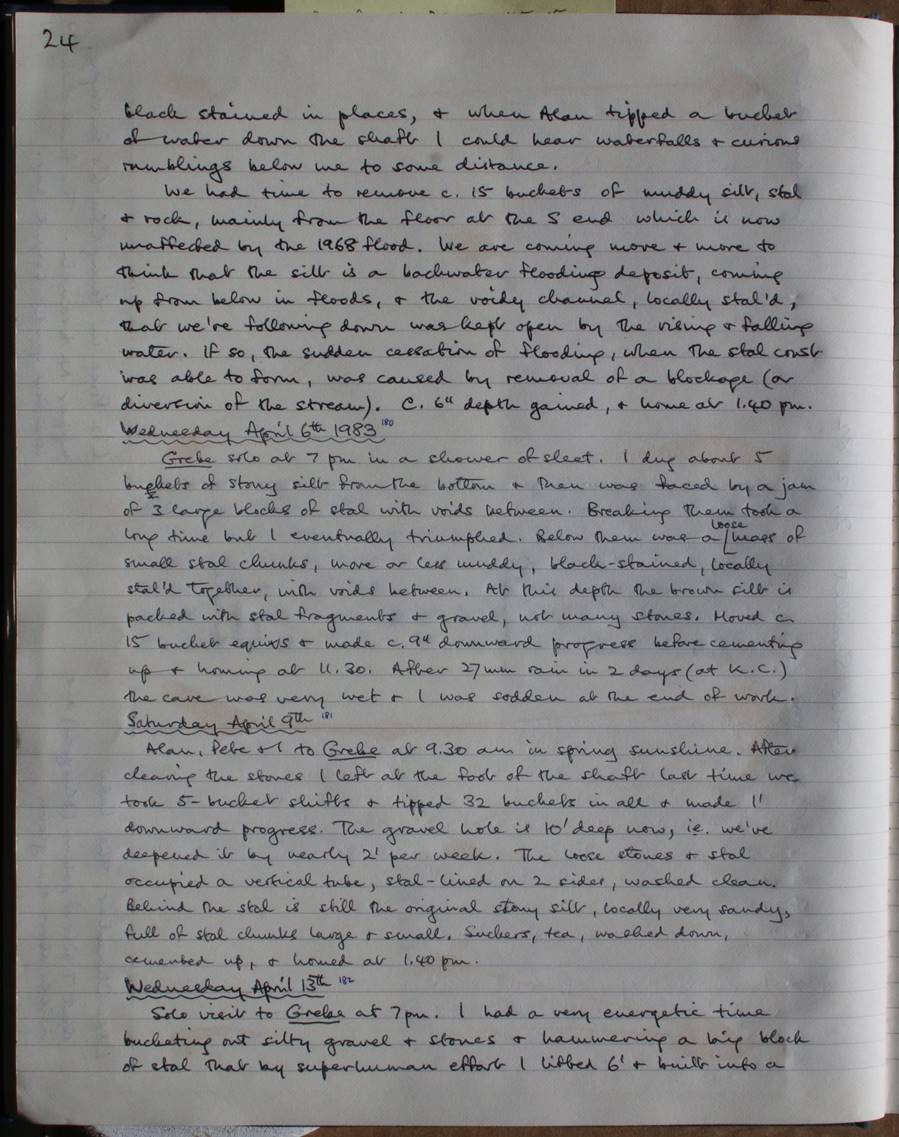 24
black stained in places, & when Alan tipped a bucket
of water down the shaft I could hear waterfalls & curious
rumblings below me to some distance.
We had time to remove c. 15 buckets of muddy silt, stal
& rock, mainly from the floor at the S end which is now
unaffected by the 1968 flood. We are coming more & more to
think that the silt is a backwater flooding deposit, coming
up from below in floods, & the voidy channel, locally stal'd,
that we're following down was kept open by the rising & falling
water. If so, the sudden cessation of flooding, when the stal crust
was able to form, was caused by removal of a blockage (or
diversion of the stream). C. 6" depth gained, & home at 1.40 pm.
Wednesday April 6th 1983 180
Grebe solo at 7 pm in a shower of sleet. I dug about 5
buckets of stony silt from the bottom & then was faced by a jam
of 3 large blocks of stal with voids between. Breaking them took a
long time but I eventually triumphed. Below them was a loose mass of
small stal chunks, more or less muddy, black-stained, locally
stal'd together, with voids between. At this depth the brown silt is
packed with stal fragments & gravel, not many stones. Moved c.
15 bucket equivs & made c. 9" downward progress before cementing
up & homing at 11.30. After 27mm rain in 2 days (at K.C.)
the cave was very wet & I was sodden at the end of work.
Saturday April 9th 181
Alan, Pete & I to Grebe at 9.30 am in spring sunshine. After
clearing the stones I left at the foot of the shaft last time we
took 5-bucket shifts & tipped 32 buckets in all & made 1'
downward progress. The gravel hole is 10' deep now, ie. we've
deepened it by nearly 2' per week. The loose stones & stal
occupied a vertical tube, stal-lined on 2 sides, washed clean.
Behind the stal is still the original stony silt, locally very sandy,
full of stal chunks large & small. Suckers, tea, washed down,
cemented up, & homed at 1.40 pm.
Wednesday April 13th 182
Solo visit to Grebe at 7pm. I had a very energetic time
bucketing out silty gravel & stones & hammering a big block
of stal that by superhuman effort I lifted 6' & built into a